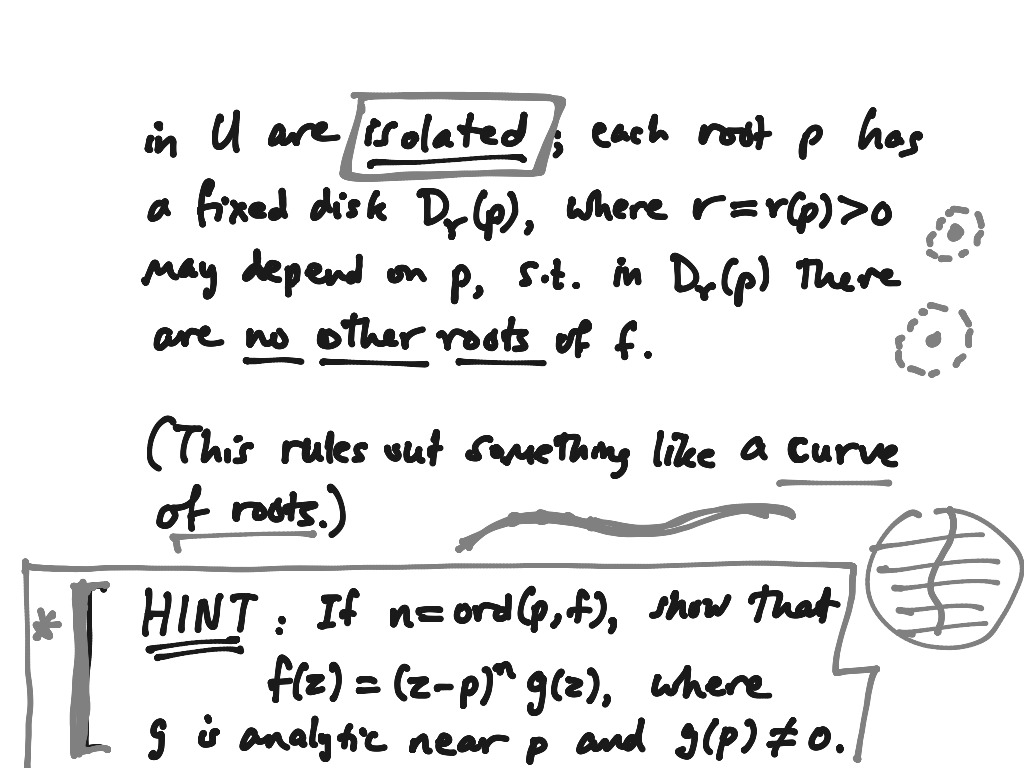 in U are isolated; each root p has
a fixed disk Dᵣ(p), where r=r(p)>0
may depend on p, s.t. in Dᵣ(p) there
are no other roots of f.
(This rules out something like a curve
of roots.)
* HINT: If n=ord(p,f), show that
f(z)=(z-p)ⁿ g(z), where
g is analytic near p and g(p)≠0.